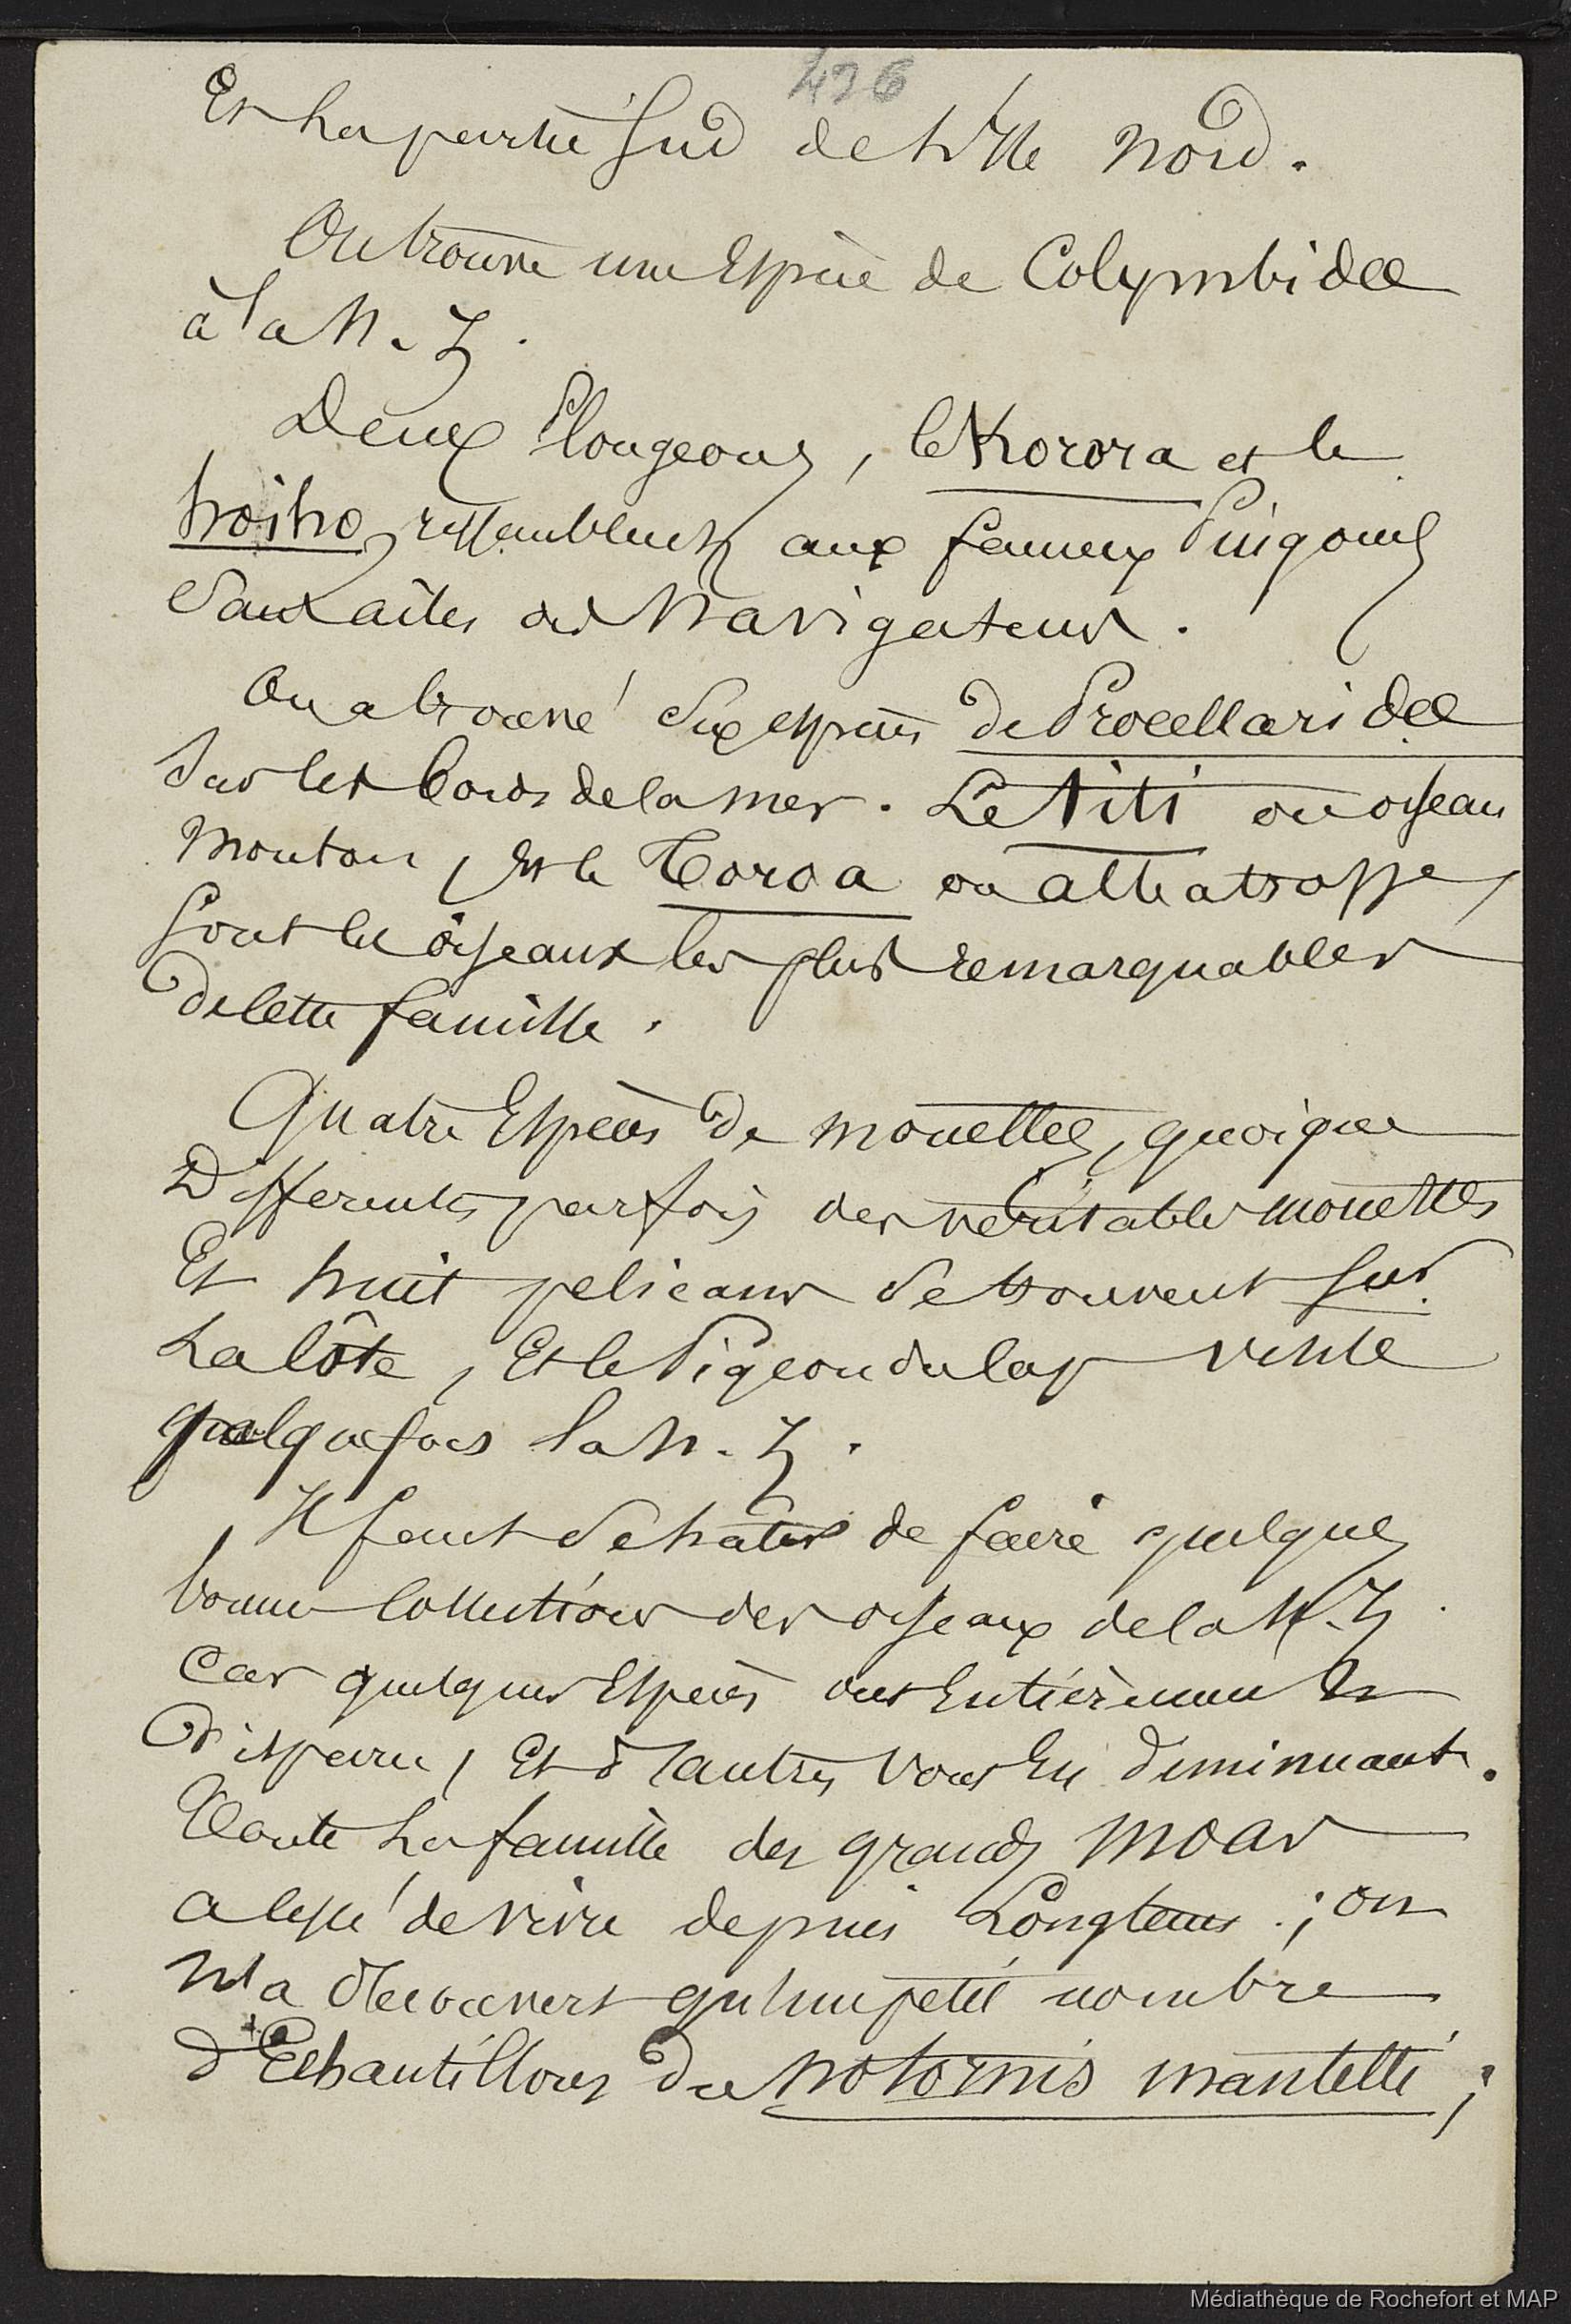 426
Et la partie Sud de l'Ile Nord.
On trouve une Espèce de Colymbidae
à la N. Z.
Deux Plongeons, le Korora et le
hoiho, ressemblent aux fameux Pingouins
sans ailes des Navigateurs.
On a trouvé six espèces de Procellaridae
sur les bords de la mer. Le Titi ou oiseau
Mouton, et le Toroa ou albatrosse,
sont les oiseaux les plus remarquables
de cette famille.
Quatre Espèces de mouettes, quoique
Differentes parfois des véritables mouettes
Et huit pelicans se trouvent sur
La Côte, Et le Pigeon du Cap visite
quelquefois la N. Z.
Il faut se hâter de faire quelques
bonnes Collections des oiseaux de la N. Z
Car quelques Espèces ont Entièrement
disparu, Et d'autres vont En diminuant.
Toute La famille des grands moas
a cessé de vivre depuis Longtems ; on
n'a découvert qu'un petit nombre
d'Echantillons du Notornis mantelli ;
Médiathèque de Rochefort et MAP